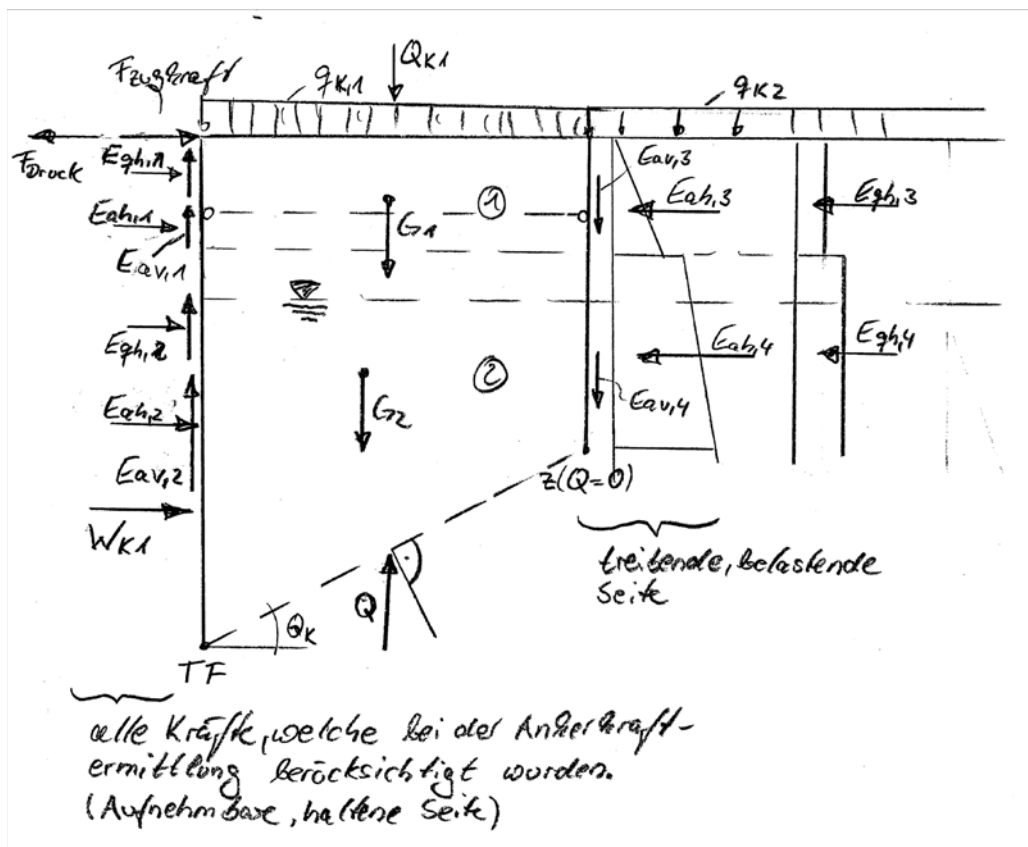 QK1
Fzugkraft
qK,1
qK2
FDruck
Eqh,1
Eav,3
Eah,3
Eqh,3
①
G1
Eah,1
Eav,1
Eqh,2
②
G2
Eah,4
Eqh,4
Eav,4
Eah,2
Eav,2
z(Q=0)
WK1
treibende, belastende
Seite
Q
ΘK
TF
alle Kräfte, welche bei der Ankerkraft-
ermittlung berücksichtigt wurden.
(Aufnehmbare, haltene Seite)